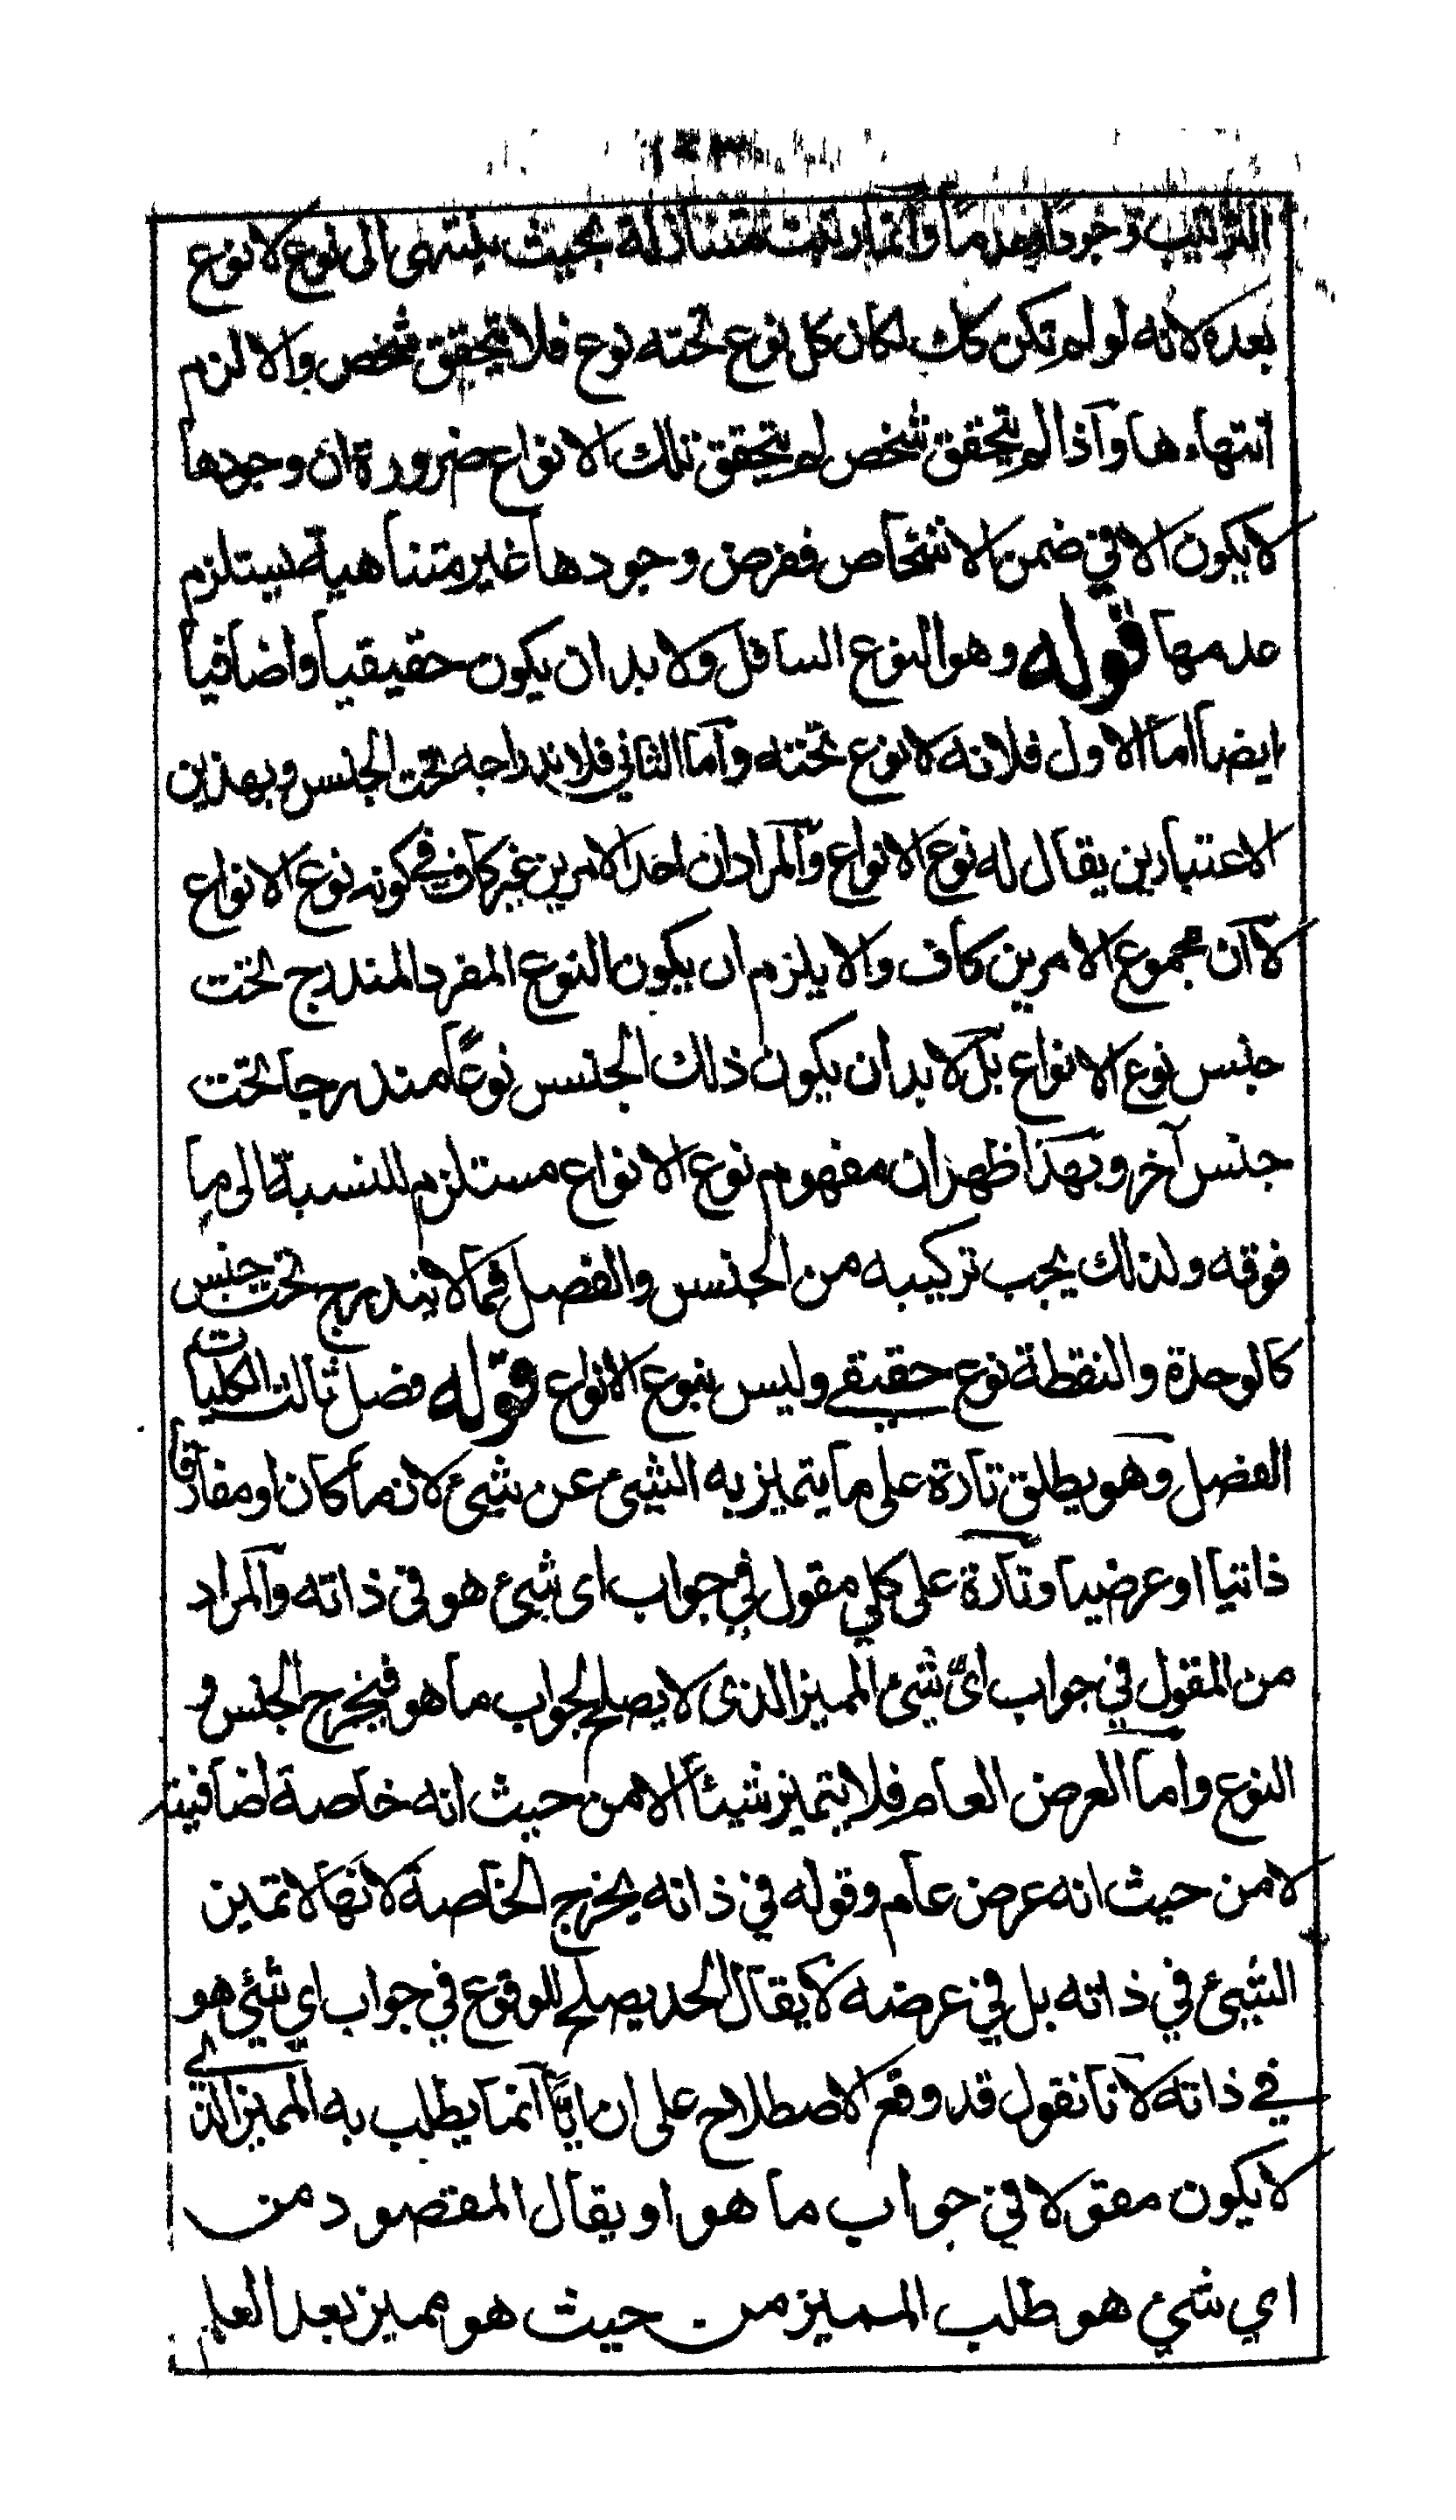 الترتيب وجودا وعدما وانما رتبت متنازلة بحيث ينتهى الى نوع لا نوع
بعده لانه لو لم تكن كك لكان كل نوع تحته نوع فلا يتحقق شخص والا لزم
انتهاءها واذا لم يتحقق شخص لم يتحقق تلك الانواع ضرورة ان وجودها
لا يكون الا في ضمن الاشخاص ففرض وجودها غير متناهية يستلزم
عدمها قوله وهو النوع السافل ولا بد ان يكون حقيقيا واضافيا
ايضا اما الاول فلانه لا نوع تحته واما الثاني فلاندراجه تحت الجنس وبهذين
الاعتبارين يقال له نوع الانواع والمراد ان احد الامرين غير كاف في كونه نوع الانواع
لا ان مجموع الامرين كاف والا يلزم ان يكون النوع المفرد المندرج تحت
جنس نوع الانواع بل لا بد ان يكون ذلك الجنس نوعًا مندرجا تحت
جنس آخر وبهذا ظهر ان مفهوم نوع الانواع مستلزم للنسبة الى ما
فوقه ولذلك يجب تركيبه من الجنس والفصل فما لا يندرج تحت جنس
كالوحدة والنقطة نوع حقيقي وليس بنوع الانواع قوله فصل ثالث الكليات
الفصل وهو يطلق تارة على ما يتميز به الشيء عن شيء لازما كان او مفارقا
ذاتيا او عرضيا وتارة على كلي مقول في جواب اى شيء هو في ذاته والمراد
من المقول في جواب اىّ شيء المميز الذى لا يصلح لجواب ما هو فيخرج الجنس و
النوع واما العرض العام فلا يتميز شيئا الا من حيث انه خاصة اضافية
لا من حيث انه عرض عام وقوله في ذاته يخرج الخاصة لانها لا تميز
الشيء في ذاته بل في عرضه لا يقال الحد يصلح للوقوع في جواب اي شيء هو
في ذاته لانا نقول قد وقع الاصطلاح على ان ايًّا انما يطلب به المميز الذى
لا يكون مقولا في جواب ما هو او يقال المقصود من
اي شيء هو طلب المميز من حيث هو مميز بعد العلم